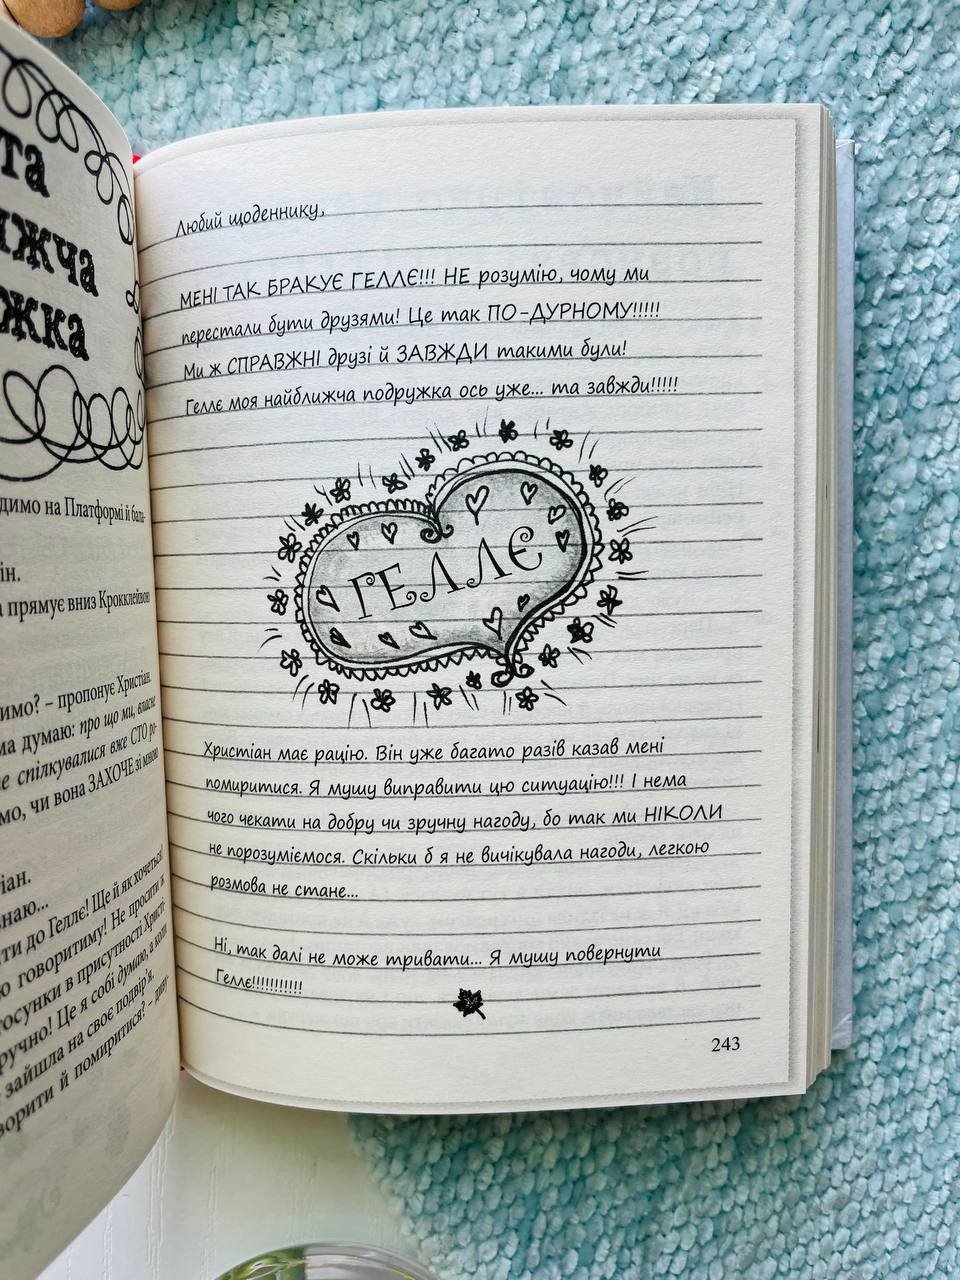 та
жча
жка
димо на Платформі й бала-
ін.
прямує вниз Крокклейвою
имо? – пропонує Христіан.
ма думаю: про що ми, власне
е спілкувалися вже СТО ро-
мо, чи вона ЗАХОЧЕ зі мною
іан.
наю...
ти до Геллє! Ще й як хочеться!
ю говоритиму! Не просити ж
осунки в присутності Христі-
ручно! Це я собі думаю, а коли
зайшла на своє подвір'я.
ворити й помиритися? – диву
Любий щоденнику,
МЕНІ ТАК БРАКУЄ ГЕЛЛЄ!!! НЕ розумію, чому ми
перестали бути друзями! Це так ПО-ДУРНОМУ!!!!!
Ми ж СПРАВЖНІ друзі й ЗАВЖДИ такими були!
Геллє моя найближча подружка ось уже... та завжди!!!!!
ГЕЛЛЄ
Христіан має рацію. Він уже багато разів казав мені
помиритися. Я мушу виправити цю ситуацію!!! І нема
чого чекати на добру чи зручну нагоду, бо так ми НІКОЛИ
не порозуміємося. Скільки б я не вичікувала нагоди, легкою
розмова не стане...
Ні, так далі не може тривати... Я мушу повернути
Геллє!!!!!!!!!!!
243